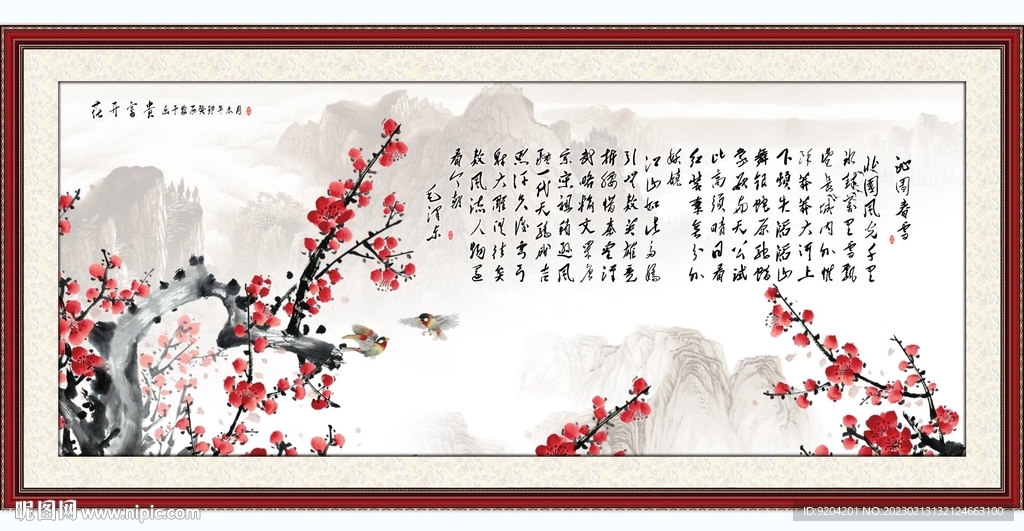 花开富贵 癸卯年
沁园春雪
北国风光千里
冰封万里雪飘
望长城内外惟
余莽莽大河上
下顿失滔滔山
舞银蛇原驰蜡
象欲与天公试
比高须晴日看
红装素裹分外
妖娆
江山如此多娇
引无数英雄竞
折腰惜秦皇汉
武略输文采唐
宗宋祖稍逊风
骚一代天骄成吉
思汗只识弯弓
射大雕俱往矣
数风流人物还
看今朝
毛泽东
昵图网 www.nipic.com
ID:9204201 NO:20230213132124663100